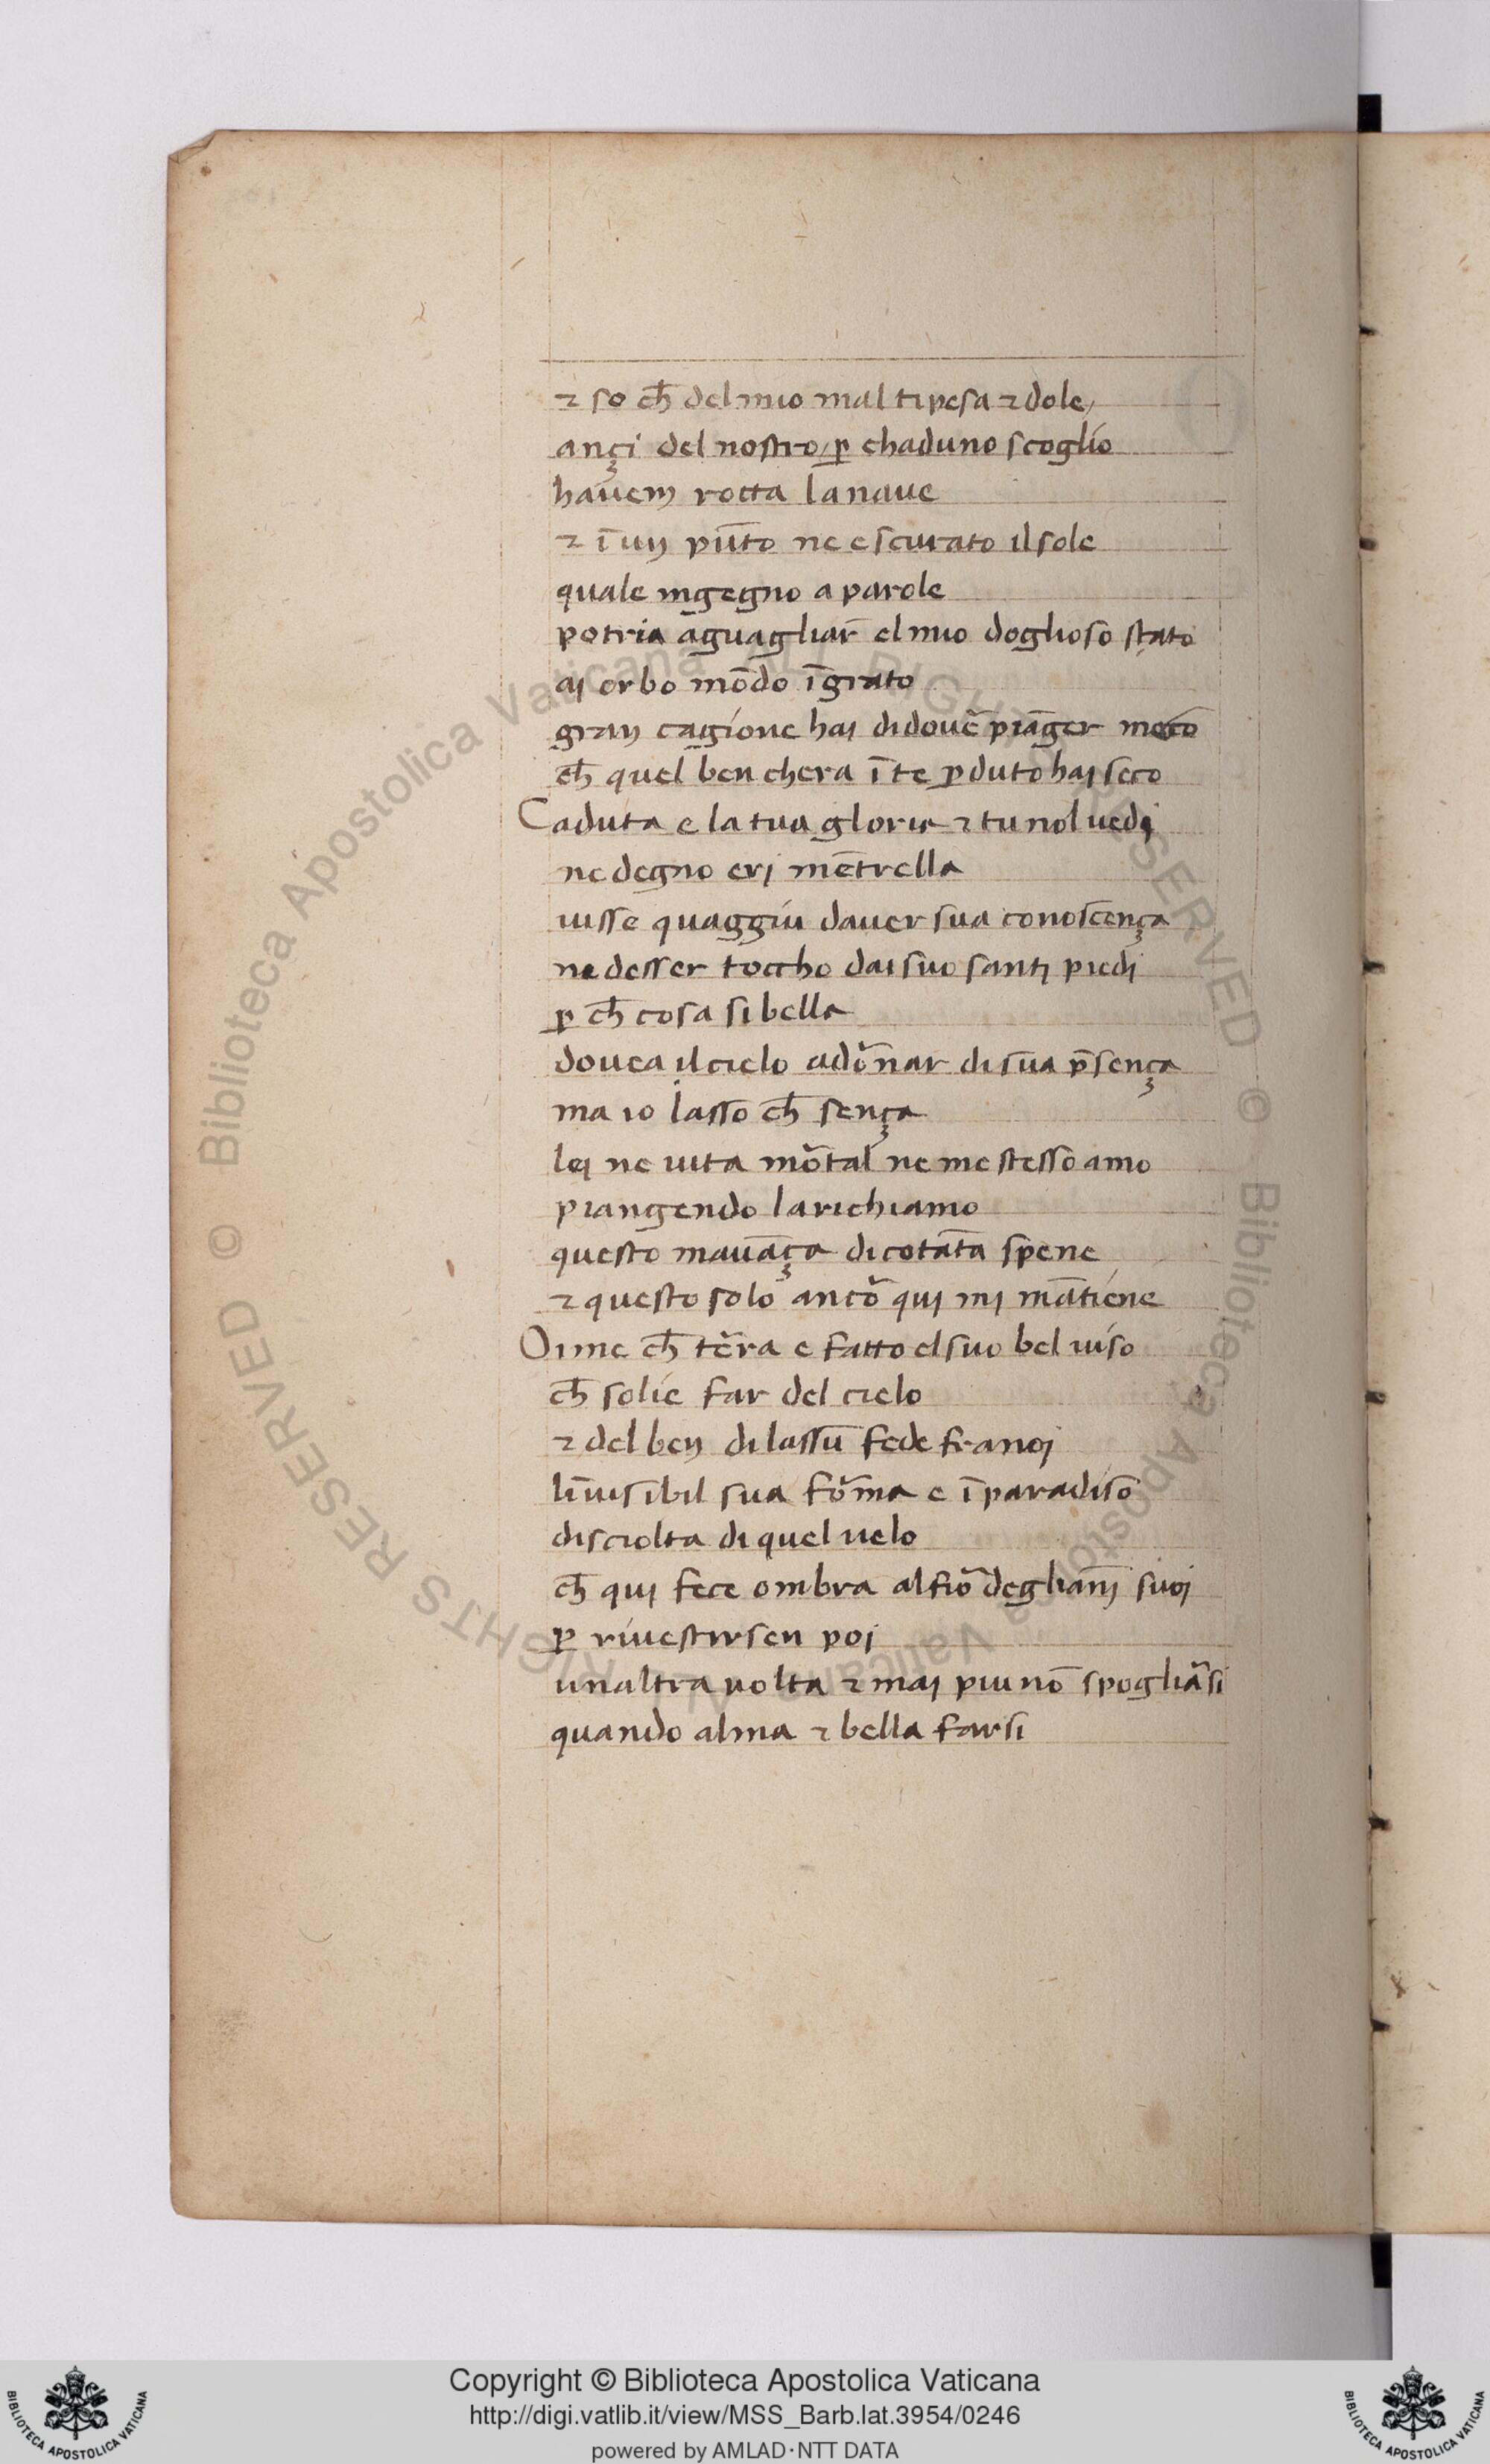 ⁊ so ch̄ del mio mal ti pesa ⁊ dole/
anꝫi del nostro/ ꝑ chaduno scoglio
havem rotta la naue
⁊ ī un pūto ne e scurato il sole
quale ingegno a parole
potria aguagliar̄ el mio doglioso stato
ai orbo mōdo īgrato
gran cagione hai di doue᷑ piāger meco
ch̄ quel ben chera ī te ꝑduto hai seco
Caduta e la tua gloria ⁊ tu nol uedi
ne degno eri mētrella
uisse quaggiu dauer sua conoscença
ne desser toccho dai suo santi piedi
ꝑ ch̄ cosa si bella
douea il cielo adō᷑nar di sua p̄sença
ma io lasso ch̄ sença
lei ne uita mo᷑tal ne me stesso amo
piangendo la richiamo
questo mauāça di cotāta spene
⁊ questo solo anco᷑ qui mi mātiene
Oime ch̄ te᷑ra e fatto el suo bel uiso
ch̄ solie far del cielo
⁊ del ben di lassu fede fra noi
līuisibil sua fo᷑ma e ī paradiso
disciolta di quel uelo
ch̄ qui fece ombra al fio᷑ degliāni suoi
ꝑ riuestirsen poi
unaltra uolta ⁊ mai piu nō spoglia᷑si
quando alma ⁊ bella farsi
Copyright © Biblioteca Apostolica Vaticana
http://digi.vatlib.it/view/MSS_Barb.lat.3954/0246
powered by AMLAD·NTT DATA
BIBLIOTECA APOSTOLICA VATICANA
BIBLIOTECA APOSTOLICA VATICANA
© Biblioteca Apostolica Vaticana ALL RIGHTS RESERVED © Biblioteca Apostolica Vaticana ALL RIGHTS RESERVED